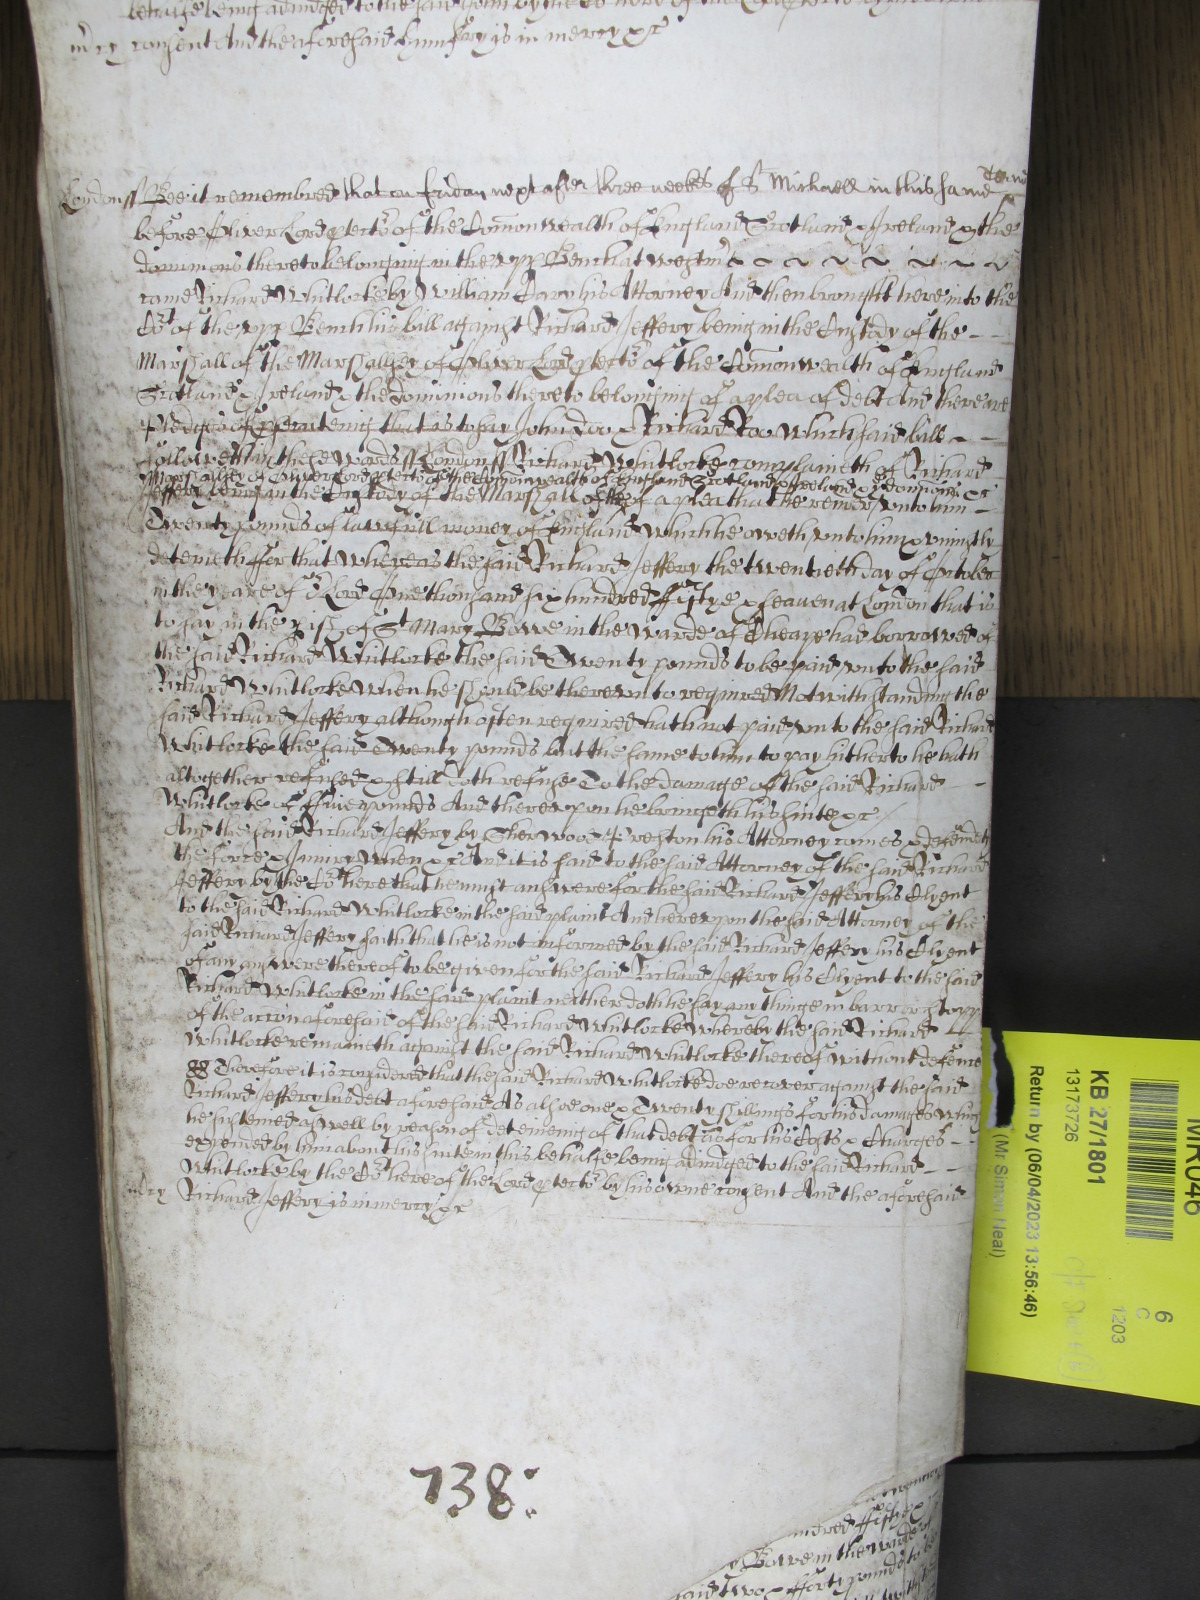 behalfe being adiudged to the said John by the Co here of the Lord
m̃cy consent And the aforesaid Humfry is in mercy &c
London ss Bee it remembred that on friday next after three weekes of St Michaell in this same Terme
before Oliver Lord ꝓtector of the Comonwealth of England Scotland & Ireland & the
dominions thereto belonging in the vpp Bench at westmr
came Richard Whitlocke by William Cary his Attorney And then brought here into the
Cort of the vpp Bench his bill against Richard Jeffery being in the Custody of the
Marshall of the Marshalsey of Oliver Lord ꝓtector of the Comonwealth of England
Scotland & Ireland & the dominions thereto belonging of a plea of debt And there are
Pledges of ꝓsecuteing that is to say John Doo & Richard Roo Which said bill
followeth in these words ss London ss Richard Whitlocke complaineth of Richard
Marshalsey of Oliver Lord ꝓtector of the Comonwealth of England Scotland & Ireland & ye dominions &c
Jeffery being in the Custody of the Marshall of the of a plea that he render vnto him
Twenty pounds of lawfull money of England Which he oweth vnto him & vniustly
deteineth ffor that Whereas the said Richard Jeffery the twentieth day of October
in the yeare of or Lord One thousand six hundred ffiftye & seaven at London that is
to say in the ꝑish of St Mary Bowe in the Warde of Cheape had borrowed of
the said Richard Whitlocke the said Twenty pounds to be paid vnto the said
Richard Whitlocke When he should be therevnto required Notwithstanding the
said Richard Jeffery although often required hath not paid vnto the said Richard
Whitlocke the said Twenty pounds but the same to him to pay hitherto he hath
altogether refused & still doth refuse To the damage of the said Richard
Whitlocke of ffive pounds And therevpon he bringeth his suite &c
And the said Richard Jeffery by Sherwood Preston his Attorney comes & defendeth
the force & Iniury When &c And it is said to the said Attorney of the said Richard
Jeffery by the Co here that he must answere for the said Richard Jeffery his Clyent
to the said Richard Whitlocke in the said plaint And herevpon the said Attorney of the
said Richard Jeffery saith that he is not informed by the said Richard Jeffery his Clyent
of any answere thereof to be given for the said Richard Jeffery his Clyent to the said
Richard Whitlocke in the said plaint neither doth he say any thinge in barr or stopp
of the accion aforesaid of the said Richard Whitlocke Whereby the said Richard
Whitlocke remaineth against the said Richard Whitlocke thereof without defence
Therefore it is considered that the said Richard Whitlocke doe recover against the said
Richard Jeffery his debt aforesaid As alsoe one & Twenty shillings for his damages Which
he susteined aswell by reason of deteineing of that debt as for his Costs & Charges
expended by him about his suite in this behalfe being adiudged to the said Richard
Whitlocke by the Cort here of the Lord ꝓtector by his owne consent And the aforesaid
m̃cy Richard Jeffery is in mercy &c
738
hundred ffifty &
Bowe in the warde of
said two & fforty pounds to be
MR046
6
C
1203
KB 27/1801
13173726
Return by (06/04/2023 13:56:46)
(Mr Simon Neal)